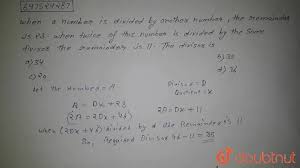 647524287
when a number is divided by another number, the remainder
is 23. when twice of this number is divided by the same
divisor the remainder is 11. The divisor is
a) 34
b) 35
c) 20
d) 36
Let the Number = A
Divisor = D
Quotient = x
A = Dx + 23
2A = 2Dx + 46
2A = D + 11
when (2Dx + 46) divided by d the Remainder is 11
So, Required Divisor 46 - 11 = 35
doubtnut